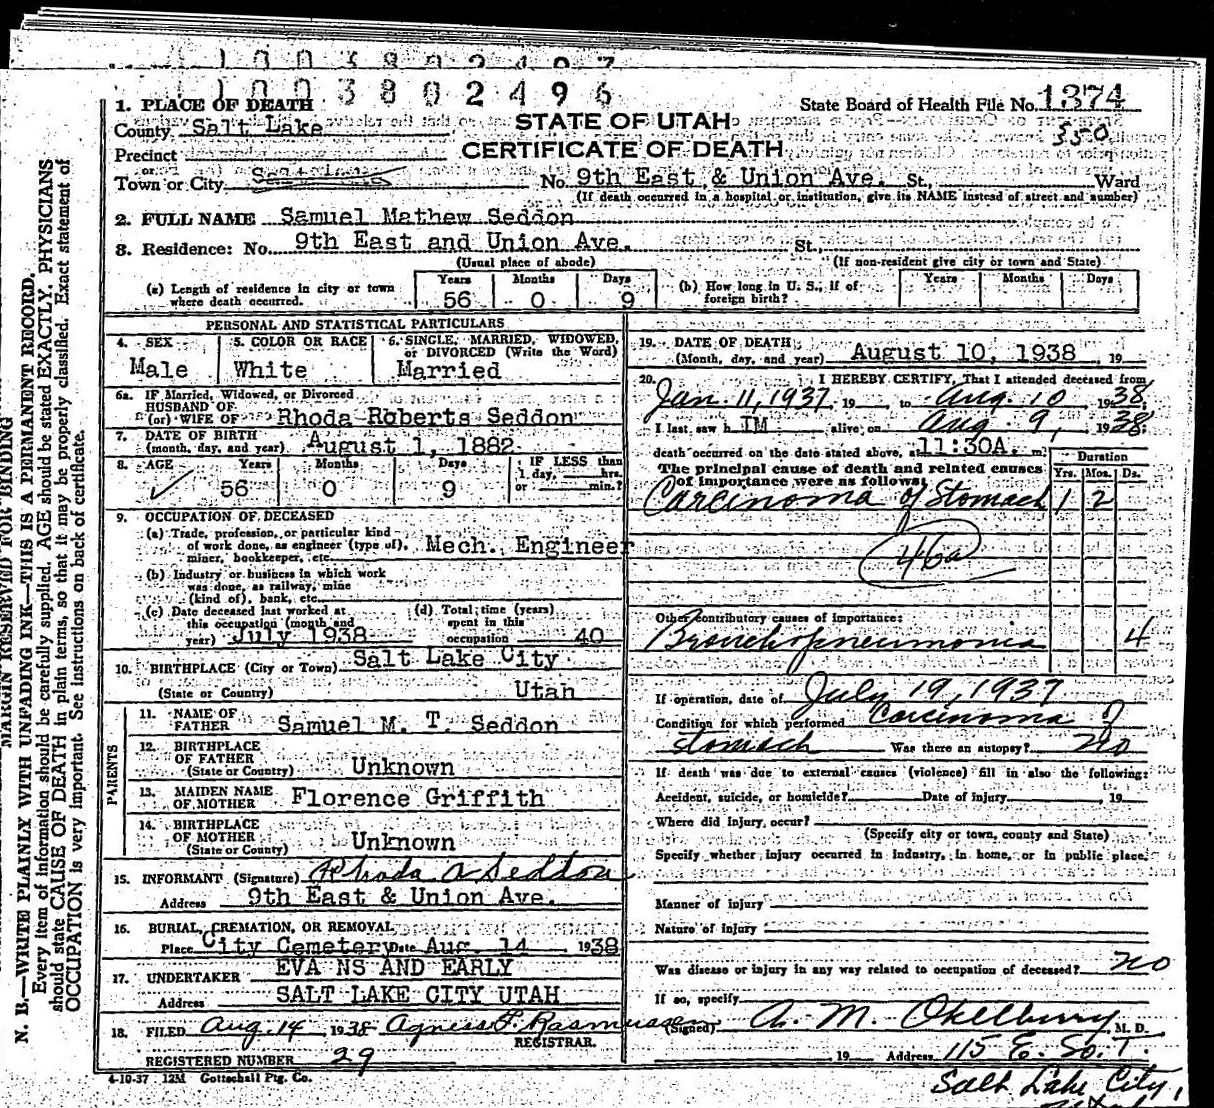 1003802496
1. PLACE OF DEATH
State Board of Health File No. 1374
County Salt Lake
STATE OF UTAH
350
Precinct
CERTIFICATE OF DEATH
or
Town or City
No. 9th East & Union Ave. St. Ward
(If death occurred in a hospital or institution, give its NAME instead of street and number)
2. FULL NAME Samuel Mathew Seddon
3. Residence: No. 9th East and Union Ave. St.,
(Usual place of abode) (If non-resident give city or town and State)
(a) Length of residence in city or town where death occurred. Years 56 Months 0 Days 9
(b) How long in U. S., if of foreign birth? Years Months Days
PERSONAL AND STATISTICAL PARTICULARS
4. SEX Male
5. COLOR OR RACE White
6. SINGLE, MARRIED, WIDOWED, or DIVORCED (Write the Word) Married
6a. IF Married, Widowed, or Divorced
HUSBAND OF
(or) WIFE OF Rhoda Roberts Seddon
7. DATE OF BIRTH
(month, day, and year) August 1, 1882
8. AGE Years 56 Months 0 Days 9 IF LESS than 1 day, hrs. or min.?
9. OCCUPATION OF DECEASED
(a) Trade, profession, or particular kind
of work done, as engineer (type of),
miner, bookkeeper, etc. Mech. Engineer
(b) Industry or business in which work
was done, as railway, mine
(kind of), bank, etc.
(c) Date deceased last worked at
this occupation (month and
year) July 1938
(d) Total time (years)
spent in this
occupation 40
10. BIRTHPLACE (City or Town) Salt Lake City
(State or Country) Utah
PARENTS
11. NAME OF
FATHER Samuel M. T. Seddon
12. BIRTHPLACE
OF FATHER
(State or Country) Unknown
13. MAIDEN NAME
OF MOTHER Florence Griffith
14. BIRTHPLACE
OF MOTHER
(State or Country) Unknown
15. INFORMANT (Signature) Rhoda A Seddon
Address 9th East & Union Ave.
16. BURIAL, CREMATION, OR REMOVAL
Place City Cemetery Date Aug. 14 1938
17. UNDERTAKER EVA NS AND EARLY
Address SALT LAKE CITY UTAH
18. FILED Aug. 14, 1938 Agness F. Rasmussen
REGISTRAR.
REGISTERED NUMBER 29
4-10-37 12M Gottschall Ptg. Co.
19. DATE OF DEATH
(Month, day, and year) August 10, 1938, 19
20. I HEREBY CERTIFY, That I attended deceased from
Jan. 11, 1937, 19 to Aug. 10 1938,
I last saw h IM alive on Aug. 9, 1938,
death occurred on the date stated above, at 11:30A. m.
The principal cause of death and related causes
of importance were as follows:
Duration
Yrs. Mos. Ds.
Carcinoma of Stomach 1 2
46a
Other contributory causes of importance:
Bronchopneumonia 4
If operation, date of July 19, 1937
Condition for which performed Carcinoma of
stomach Was there an autopsy? no
If death was due to external causes (violence) fill in also the following:
Accident, suicide, or homicide? Date of injury , 19
Where did injury occur?
(Specify city or town, county and State)
Specify whether injury occurred in industry, in home, or in public place.
Manner of injury
Nature of injury
Was disease or injury in any way related to occupation of deceased? no
If so, specify
(Signed) A. M. Okelberry, M. D.
19 Address 115 E. So. T.
Salt Lake City,
MARGIN RESERVED FOR BINDING
N. B.—WRITE PLAINLY WITH UNFADING INK—THIS IS A PERMANENT RECORD.
Every item of information should be carefully supplied. AGE should be stated EXACTLY. PHYSICIANS
should state CAUSE OF DEATH in plain terms, so that it may be properly classified. Exact statement of
OCCUPATION is very important. See instructions on back of certificate.